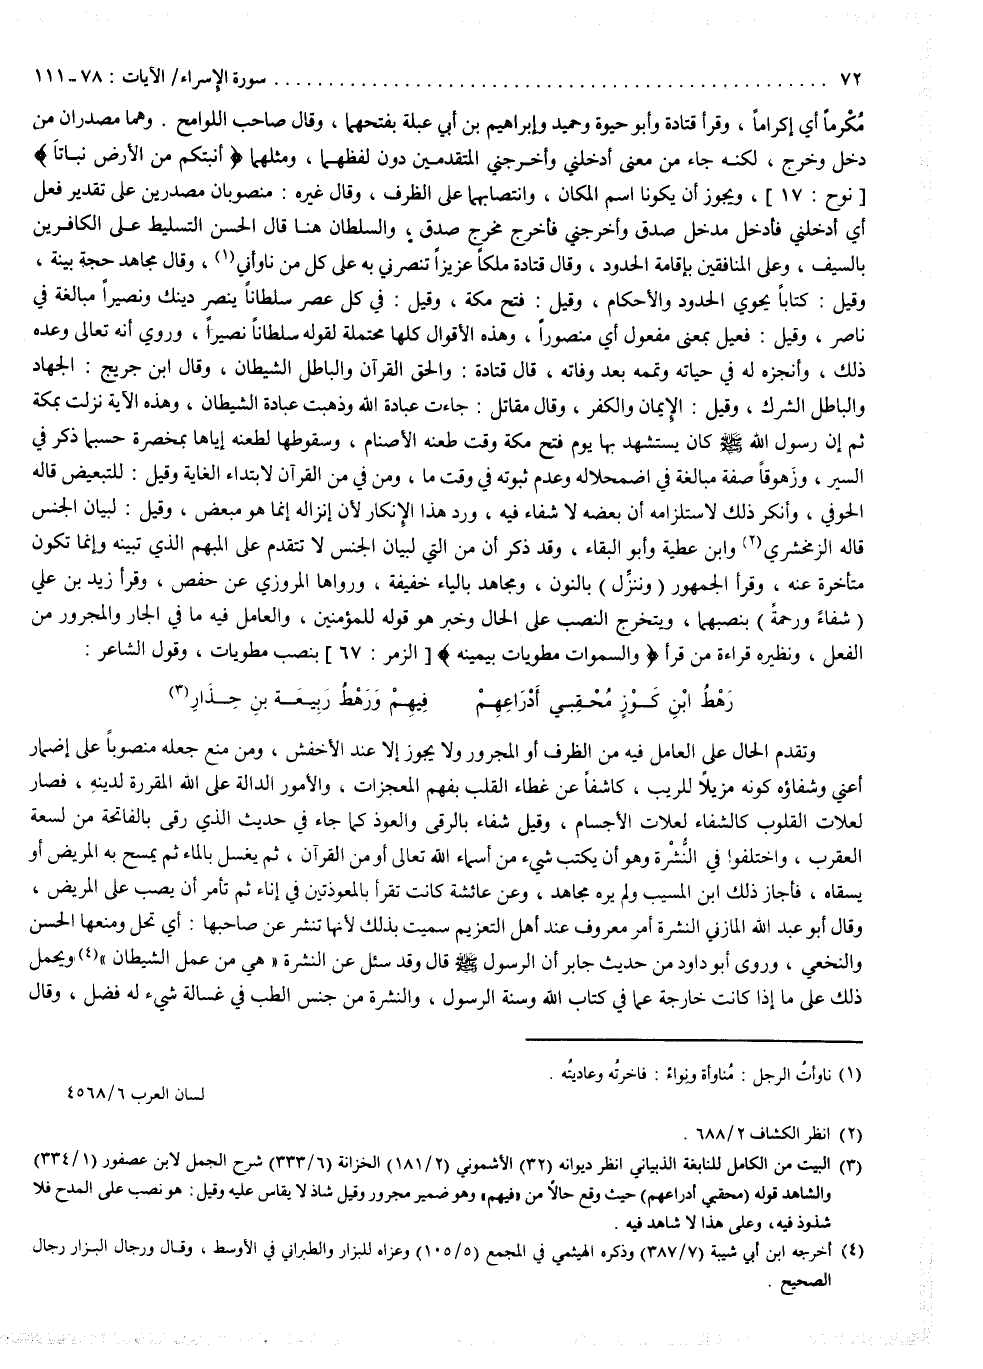 ٧٢ ........................................................ سورة الإسراء/ الآيات : ٧٨-١١١
مُكْرماً أي إكراماً ، وقرأ قتادة وأبو حيوة وحميد وإبراهيم بن أبي عبلة بفتحهما ، وقال صاحب اللوامح . وهما مصدران من
دخل وخرج ، لكنه جاء من معنى أدخلني وأخرجني المتقدمين دون لفظهما ، ومثلهما ﴿ أنبتكم من الأرض نباتاً ﴾
[ نوح : ١٧ ] ، ويجوز أن يكونا اسم المكان ، وانتصابهما على الظرف ، وقال غيره : منصوبان مصدرين على تقدير فعل
أي أدخلني فأدخل مدخل صدق وأخرجني فأخرج مخرج صدق ، والسلطان هنا قال الحسن التسليط على الكافرين
بالسيف ، وعلى المنافقين بإقامة الحدود ، وقال قتادة ملكاً عزيزاً تنصرني به على كل من ناوأني(١) ، وقال مجاهد حجة بينة ،
وقيل : كتاباً يحوي الحدود والأحكام ، وقيل : فتح مكة ، وقيل : في كل عصر سلطاناً ينصر دينك ونصيراً مبالغة في
ناصر ، وقيل : فعيل بمعنى مفعول أي منصوراً ، وهذه الأقوال كلها محتملة لقوله سلطاناً نصيراً ، وروي أنه تعالى وعده
ذلك ، وأنجزه له في حياته وتممه بعد وفاته ، قال قتادة : والحق القرآن والباطل الشيطان ، وقال ابن جريج : الجهاد
والباطل الشرك ، وقيل : الإيمان والكفر ، وقال مقاتل : جاءت عبادة الله وذهبت عبادة الشيطان ، وهذه الآية نزلت بمكة
ثم إن رسول الله ﷺ كان يستشهد بها يوم فتح مكة وقت طعنه الأصنام ، وسقوطها لطعنه إياها بمخصرة حسبما ذكر في
السير ، وزَهوقاً صفة مبالغة في اضمحلاله وعدم ثبوته في وقت ما ، ومن في من القرآن لابتداء الغاية وقيل : للتبعيض قاله
الحوفي ، وأنكر ذلك لاستلزامه أن بعضه لا شفاء فيه ، ورد هذا الإنكار لأن إنزاله إنما هو مبعض ، وقيل : لبيان الجنس
قاله الزمخشري(٢) وابن عطية وأبو البقاء ، وقد ذكر أن من التي لبيان الجنس لا تتقدم على المبهم الذي تبينه وإنما تكون
متأخرة عنه ، وقرأ الجمهور ( وننزِّل ) بالنون ، ومجاهد بالياء خفيفة ، ورواها المروزي عن حفص ، وقرأ زيد بن علي
( شفاءً ورحمةً ) بنصبهما ، ويتخرج النصب على الحال وخبر هو قوله للمؤمنين ، والعامل فيه ما في الجار والمجرور من
الفعل ، ونظيره قراءة من قرأ ﴿ والسموات مطويات بيمينه ﴾ [ الزمر : ٦٧ ] بنصب مطويات ، وقول الشاعر :
رَهْطُ ابْنِ كَـوْزٍ مُحْقِبِـي أَدْرَاعِهِمْ فِيهِمْ وَرَهْطُ رَبِيعَـةَ بنِ حِـذَارِ(٣)
وتقدم الحال على العامل فيه من الظرف أو المجرور ولا يجوز إلا عند الأخفش ، ومن منع جعله منصوباً على إضمار
أعني وشفاؤه كونه مزيلاً للريب ، كاشفاً عن غطاء القلب بفهم المعجزات ، والأمور الدالة على الله المقررة لدينهِ ، فصار
لعلات القلوب كالشفاء لعلات الأجسام ، وقيل شفاء بالرقى والعوذ كما جاء في حديث الذي رقى بالفاتحة من لسعة
العقرب ، واختلفوا في النُّشْرة وهو أن يكتب شيء من أسماء الله تعالى أو من القرآن ، ثم يغسل بالماء ثم يمسح به المريض أو
يسقاه ، فأجاز ذلك ابن المسيب ولم يره مجاهد ، وعن عائشة كانت تقرأ بالمعوذتين في إناء ثم تأمر أن يصب على المريض ،
وقال أبو عبد الله المازني النشرة أمر معروف عند أهل التعزيم سميت بذلك لأنها تنشر عن صاحبها : أي تحل ومنعها الحسن
والنخعي ، وروى أبو داود من حديث جابر أن الرسول ﷺ قال وقد سئل عن النشرة « هي من عمل الشيطان »(٤) ويحمل
ذلك على ما إذا كانت خارجة عما في كتاب الله وسنة الرسول ، والنشرة من جنس الطب في غسالة شيء له فضل ، وقال
(١) ناوأتُ الرجل : مُناوأة ونِواءً : فاخرتُه وعاديتُه .
لسان العرب ٤٥٦٨/٦
(٢) انظر الكشاف ٦٨٨/٢ .
(٣) البيت من الكامل للنابغة الذبياني انظر ديوانه (٣٢) الأشموني (١٨١/٢) الخزانة (٣٣٣/٦) شرح الجمل لابن عصفور (٣٣٤/١)
والشاهد قوله (محقبي أدراعهم) حيث وقع حالاً من «فيهم» وهو ضمير مجرور وقيل شاذ لا يقاس عليه وقيل : هو نصب على المدح فلا
شذوذ فيه، وعلى هذا لا شاهد فيه .
(٤) أخرجه ابن أبي شيبة (٣٨٧/٧) وذكره الهيثمي في المجمع (١٠٥/٥) وعزاه للبزار والطبراني في الأوسط ، وقال ورجال البزار رجال
الصحيح .